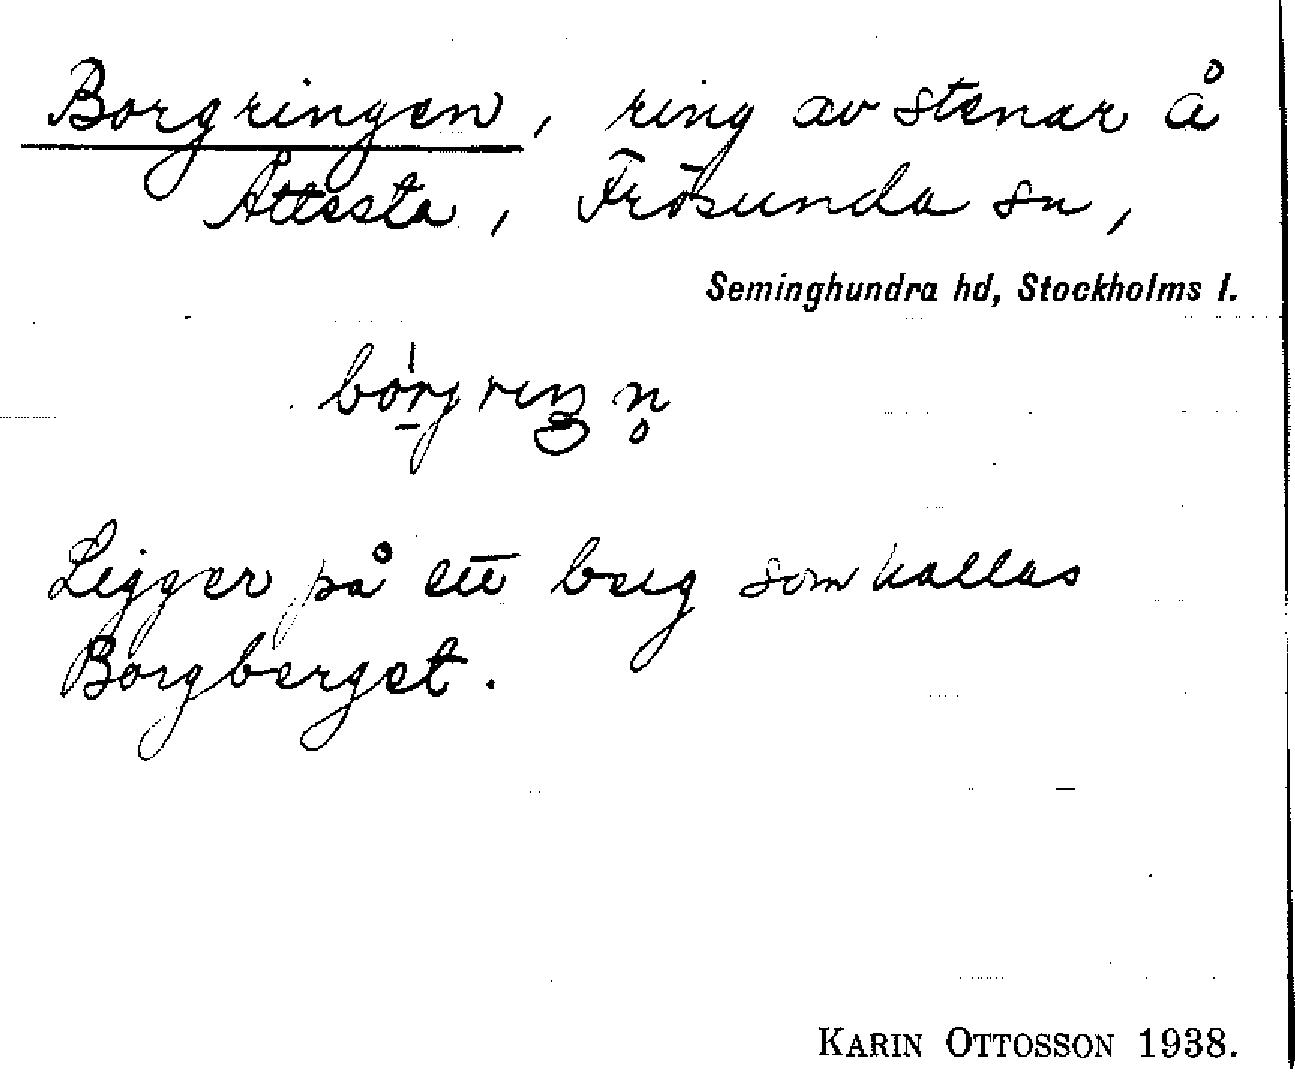 Borgringen, ring av stenar å
Åttesta, Frösunda sn,
Seminghundra hd, Stockholms l.
Ligger på ett berg som kallas
Borgberget.
KARIN OTTOSSON 1938.